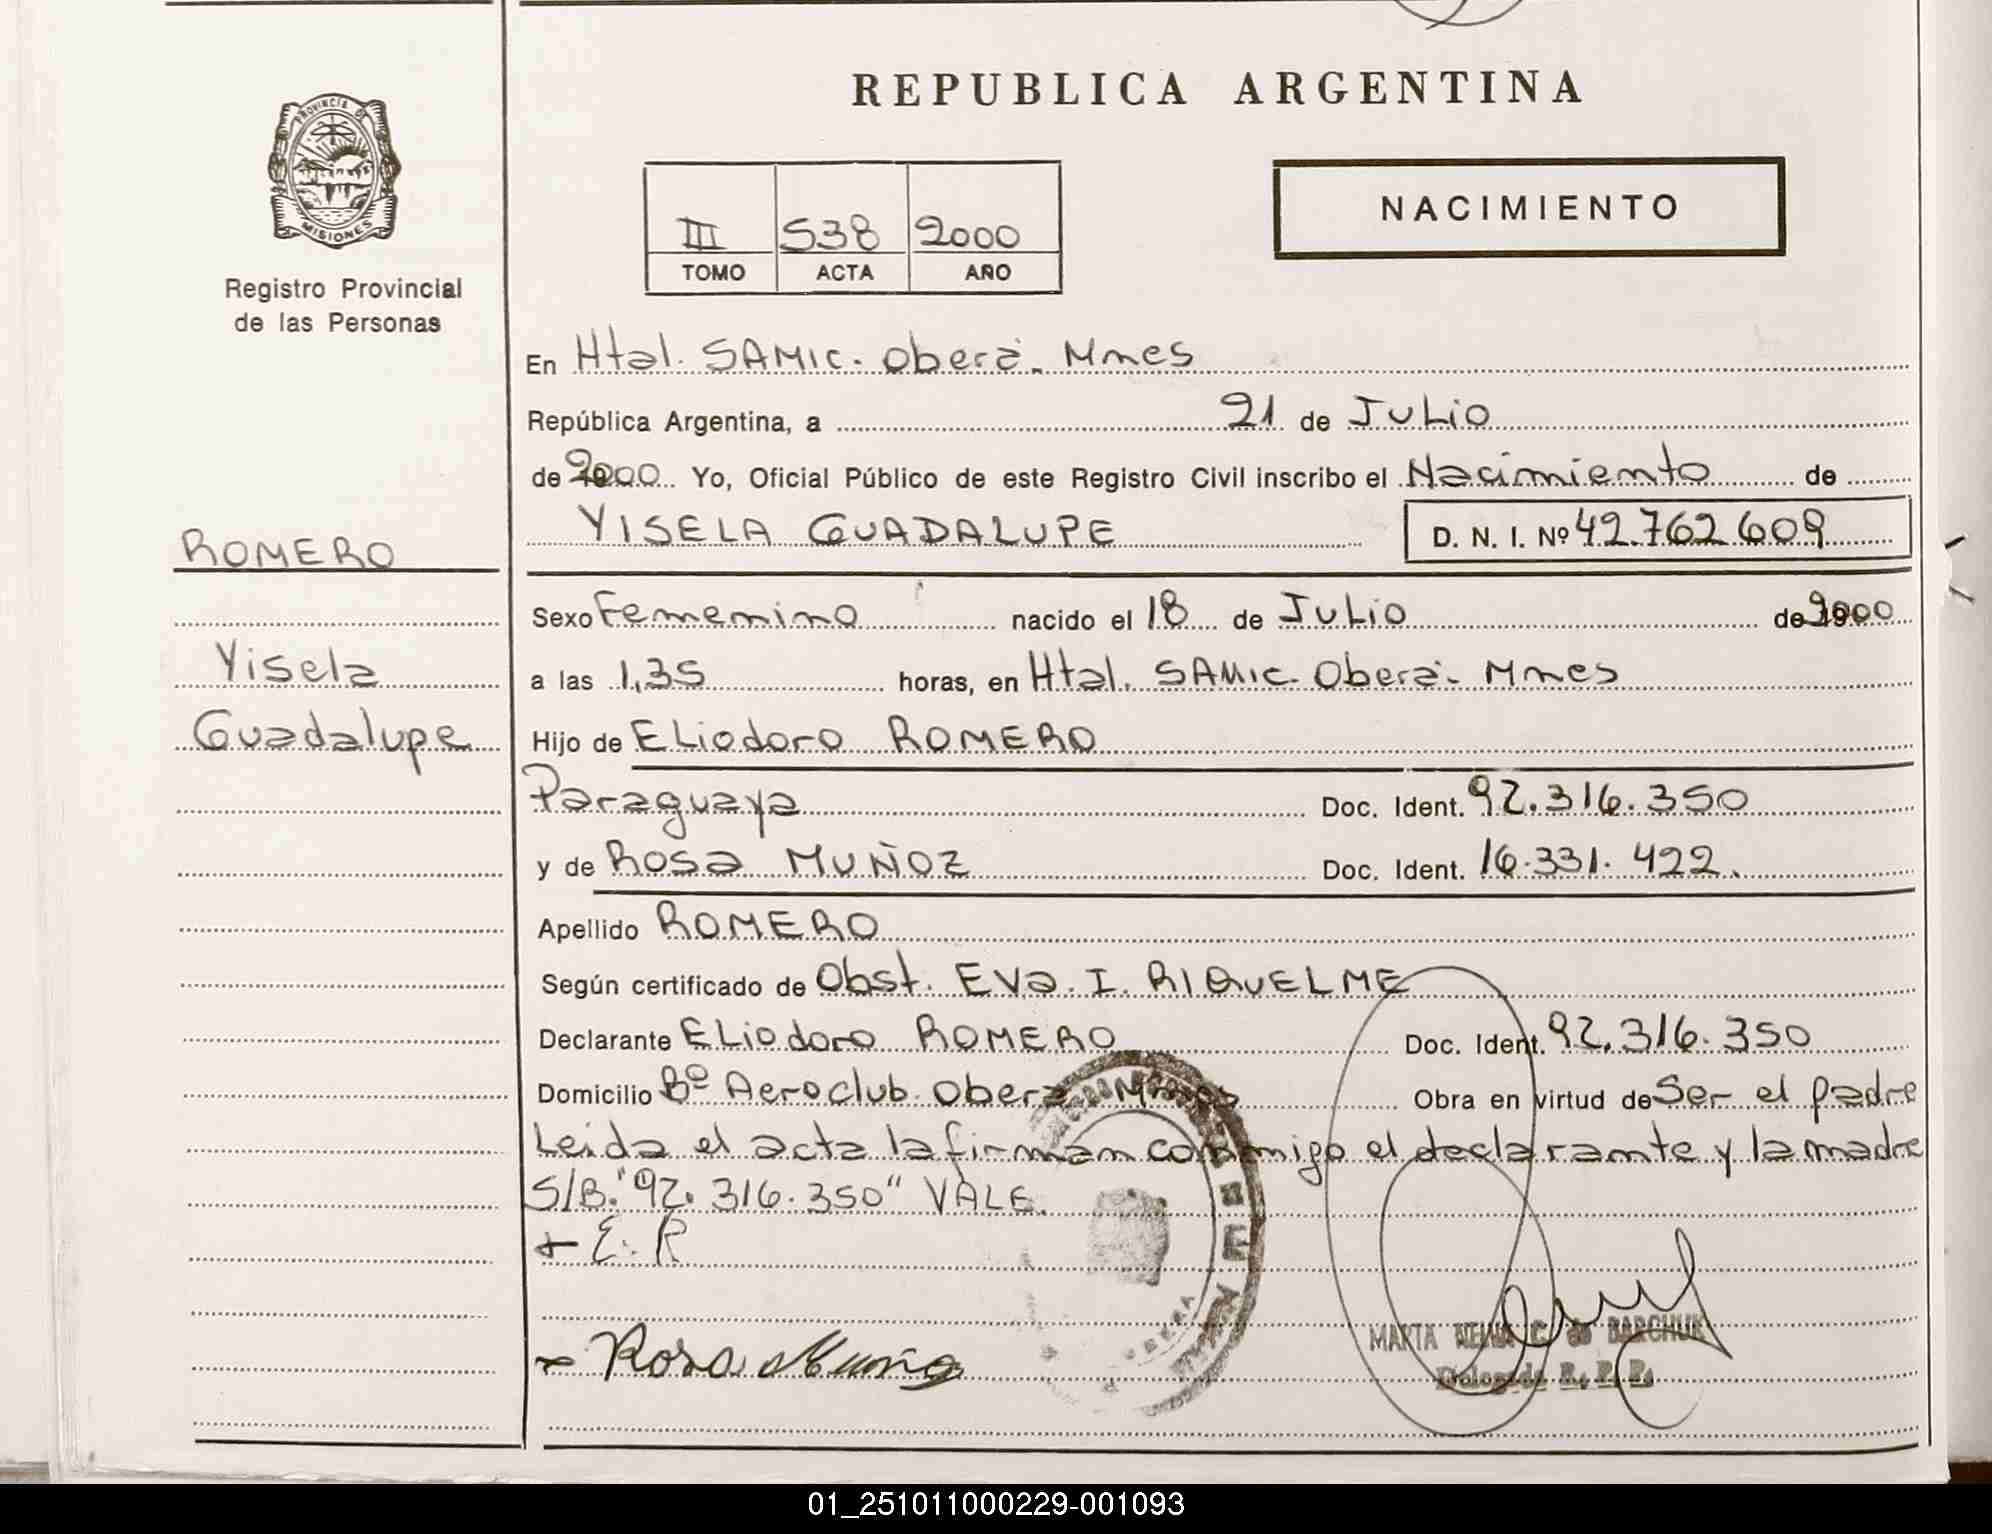 REPUBLICA ARGENTINA
PROVINCIA DE
MISIONES
Registro Provincial
de las Personas
NACIMIENTO
III 538 2000
TOMO ACTA AÑO
En Htal. SAMIC. Oberá. Mnes
República Argentina, a 21 de JULIO
de 2000 Yo, Oficial Público de este Registro Civil inscribo el Nacimiento de
YISELA GUADALUPE D. N. I. Nº 42.762.609
ROMERO
Yisela
Guadalupe
Sexo Femenino nacido el 18 de JULIO de 2000
a las 1,35 horas, en Htal. SAMIC. Oberá. Mnes
Hijo de ELiodoro ROMERO
Paraguaya Doc. Ident. 92.316.350
y de ROSA MUÑOZ Doc. Ident. 16.331.422.
Apellido ROMERO
Según certificado de Obst. EVa. I. RIQUELME
Declarante ELiodoro ROMERO Doc. Ident. 92.316.350
Domicilio Bº Aeroclub Oberá Obra en virtud de Ser el padre
Leída el acta la firman conmigo el declarante y la madre
S/B. "92.316.350" VALE.
E. R
Rosa Muño
MARTA C. de BARCHUK
Delegada R. P. P.
01_251011000229-001093